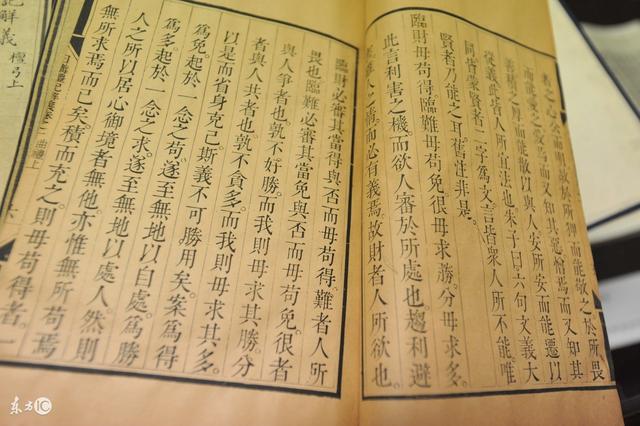 於所狎而能敬之於所畏
而能愛之愛焉而又知其惡憎焉而又知其
而能散以與人安所安而能遷以
從義此皆人所宜法也朱子曰六句文義大
同皆蒙賢者二字為文言皆眾人所不能唯
賢者乃能之耳舊註非是。
臨財毋苟得。臨難毋苟免很毋求勝。分毋求多。
此言利害之機。而欲人審於所處也趨利避
而必有義焉。故財者人所欲也。
臨財必審其當得與否而毋苟得。難者人所
畏也臨難必審其當免與否而毋苟免。很者
與人爭者也孰不好勝。而我則毋求其勝。分
者與人共者也孰不貪多。而我則毋求其多。
以是而省身克己。斯義不可勝用矣。案為得
為免起於一念之苟。遂至無地以自處。為勝
為多。起於一念之求。遂至無地以處人。然則
人之所以居心御境者無他。亦惟無所苟焉
無所求焉而已矣。積而充之則毋苟得者。一
曲禮上
記解義 檀弓上
东方IC